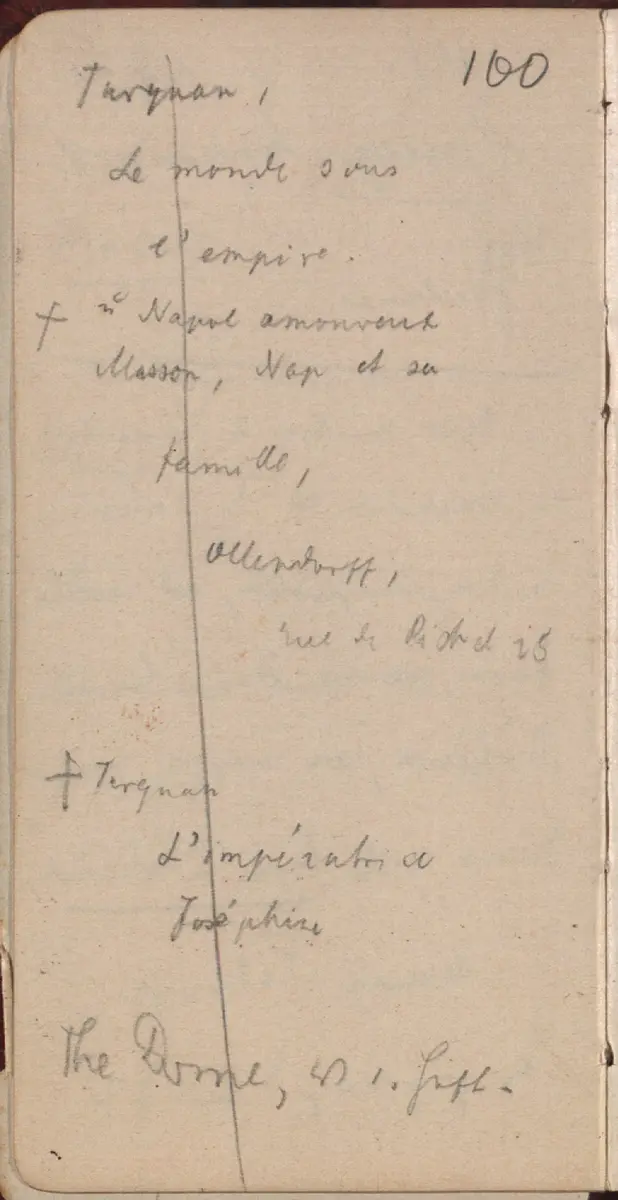 100
Turquan,
Le monde sous
l'empire.
+ " Napol amoureux
Masson, Nap et sa
famille,
Ollendorff,
rue de
+ Turquan
L'impératrice
Joséphine
The Dome,